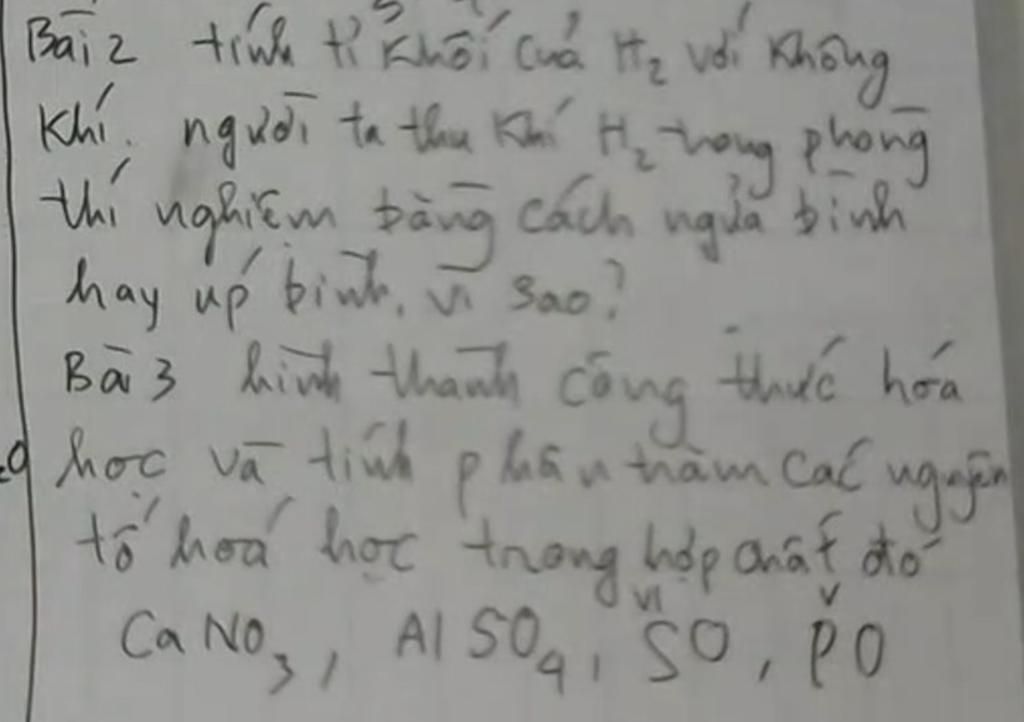 Bài 2 tính tỉ khối của H₂ với không
khí. người ta thu khí H₂ trong phòng
thí nghiệm bằng cách ngửa bình
hay úp bình, vì sao?
Bài 3 hình thành công thức hóa
học và tính phần trăm các nguyên
tố hoá học trong hợp chất đó
VI V
CaNO₃, AlSO₄, SO, PO